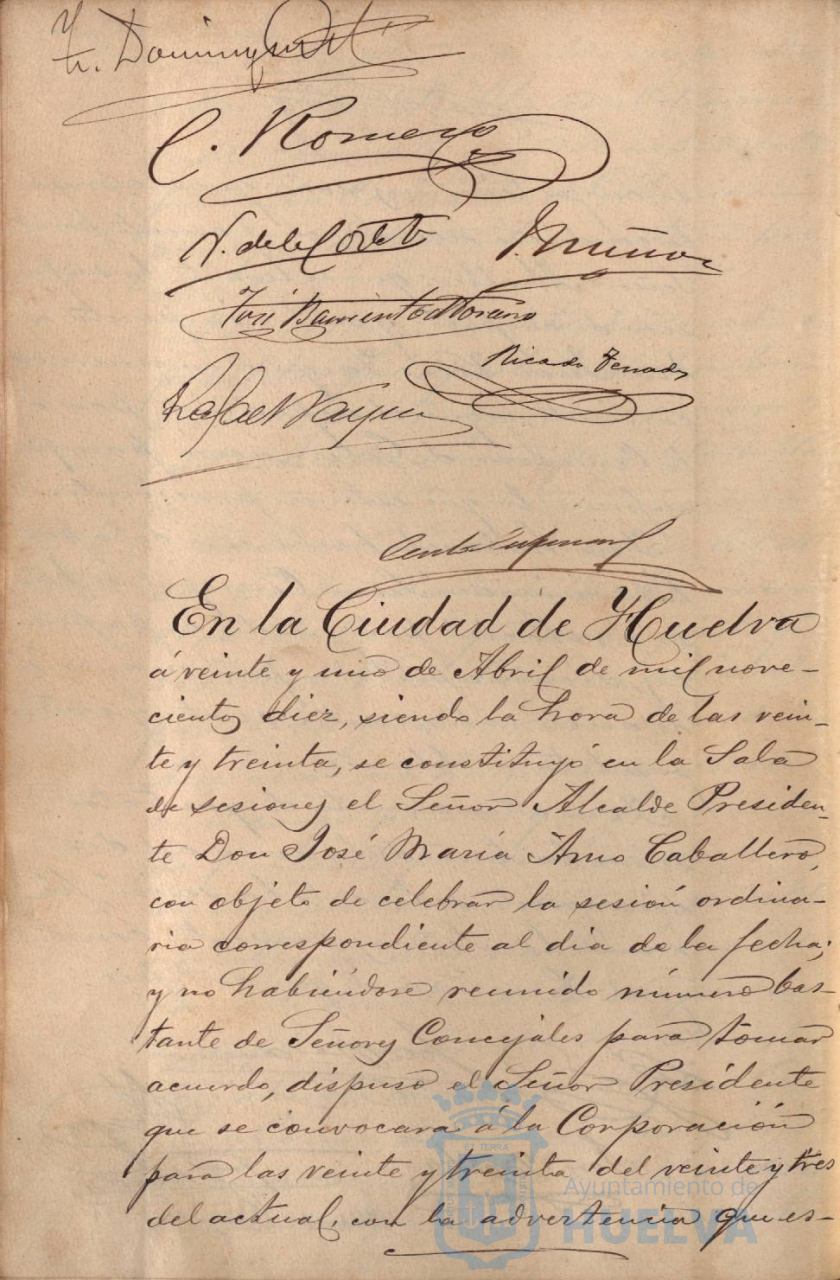 C. Romero
J. Muñoz
José Barrientos Moreno
Ricardo
Rafael
En la Ciudad de Huelva
á veinte y uno de Abril de mil nove-
cientos diez, siendo la hora de las vein-
te y treinta, se constituyó en la Sala
de sesiones el Señor Alcalde Presiden-
te Don José María Amo Caballero,
con objeto de celebrar la sesión ordina-
ria correspondiente al dia de la fecha;
y no habiéndose reunido número bas-
tante de Señores Concejales para tomar
acuerdo, dispuso el Señor Presidente
que se convocara á la Corporación
para las veinte y treinta del veinte y tres
del actual, con la advertencia que es-
Ayuntamiento de
HUELVA